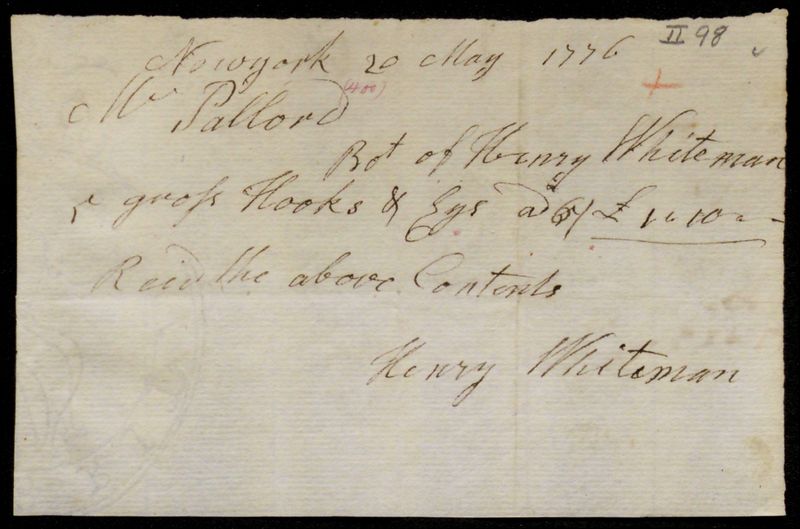 Newyork 20 May 1776 II 98
Mr Pallord (400)
Bot of Henry Whiteman
gross Hooks & Eys a 6/ £ 1 " 10 "
Recid the above Contents
Henry Whiteman